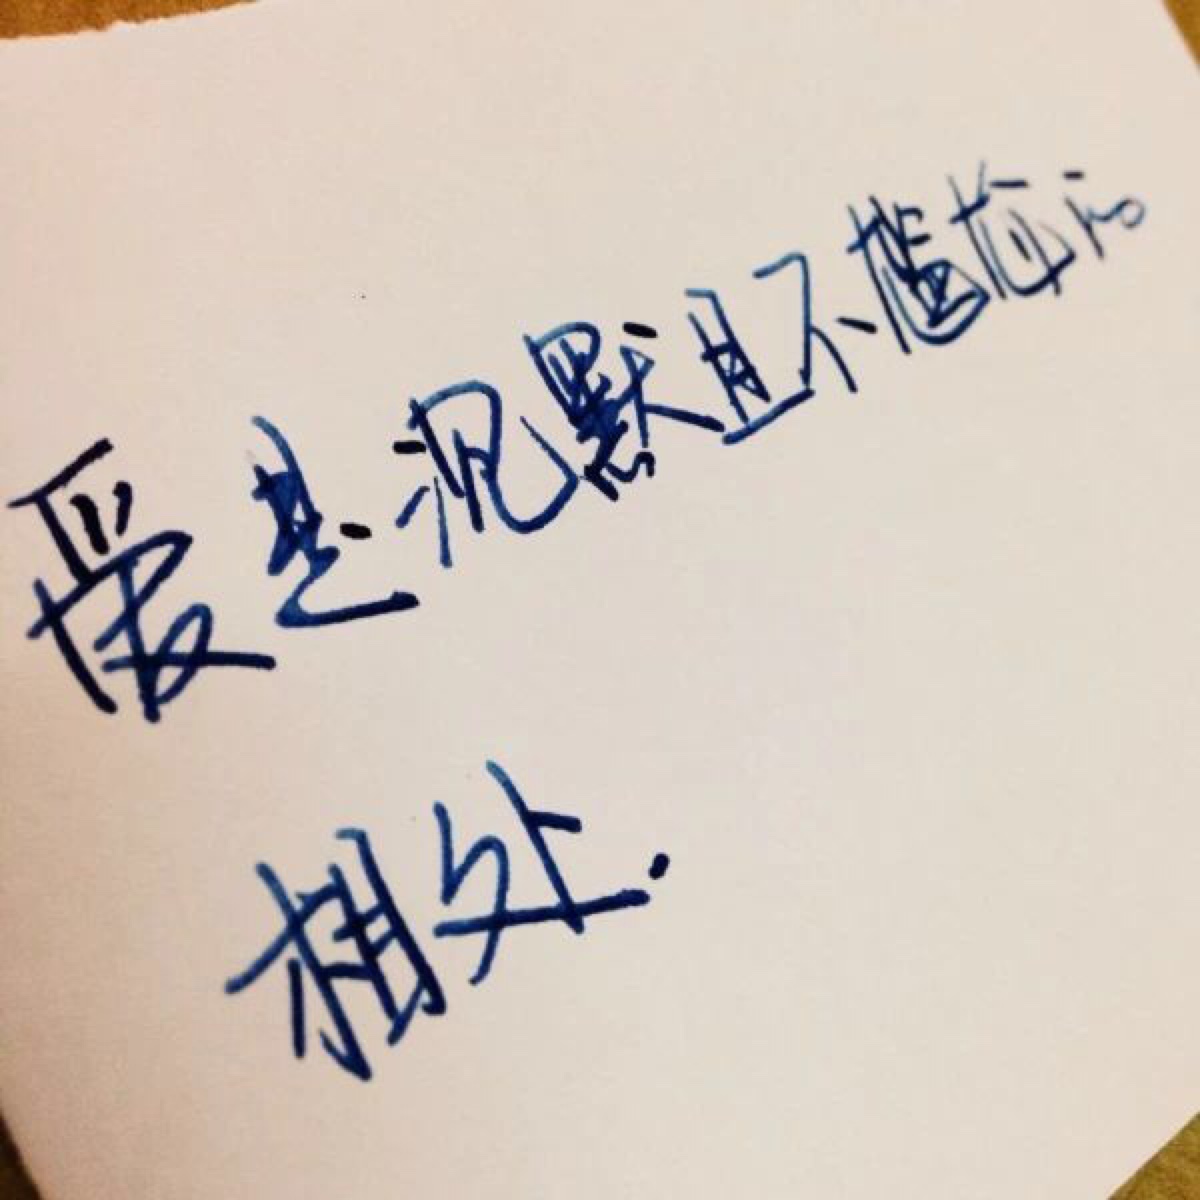 爱是沉默且不尴尬的
相处.